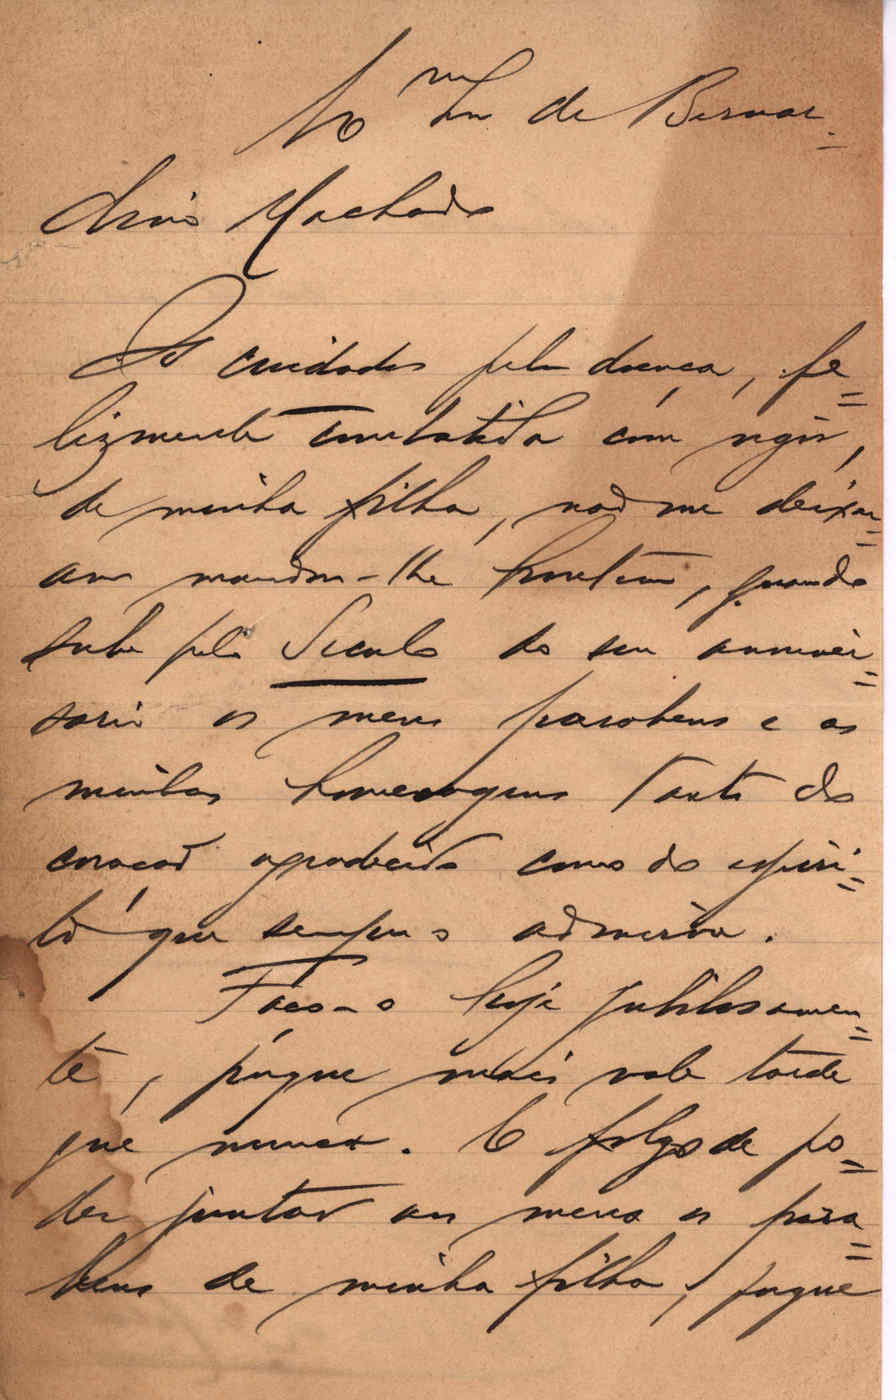 de Bernar=
dino Machado
Os cuidados pela doença, fe=
lizmente combatida com vigor,
de minha filha, não me deixar=
am mandar-lhe hontem, quando
soube pelo Seculo do seu anniver=
sario os meus parabens e as
minhas homenagens tanto do
coração agradecido como do espiri=
to que sempre o admirou.
Faço-o hoje jubilosamen=
te, porque mais vale tarde
que nunca. E folgo de po=
der juntar aos meus os para=
bens de minha filha, porque